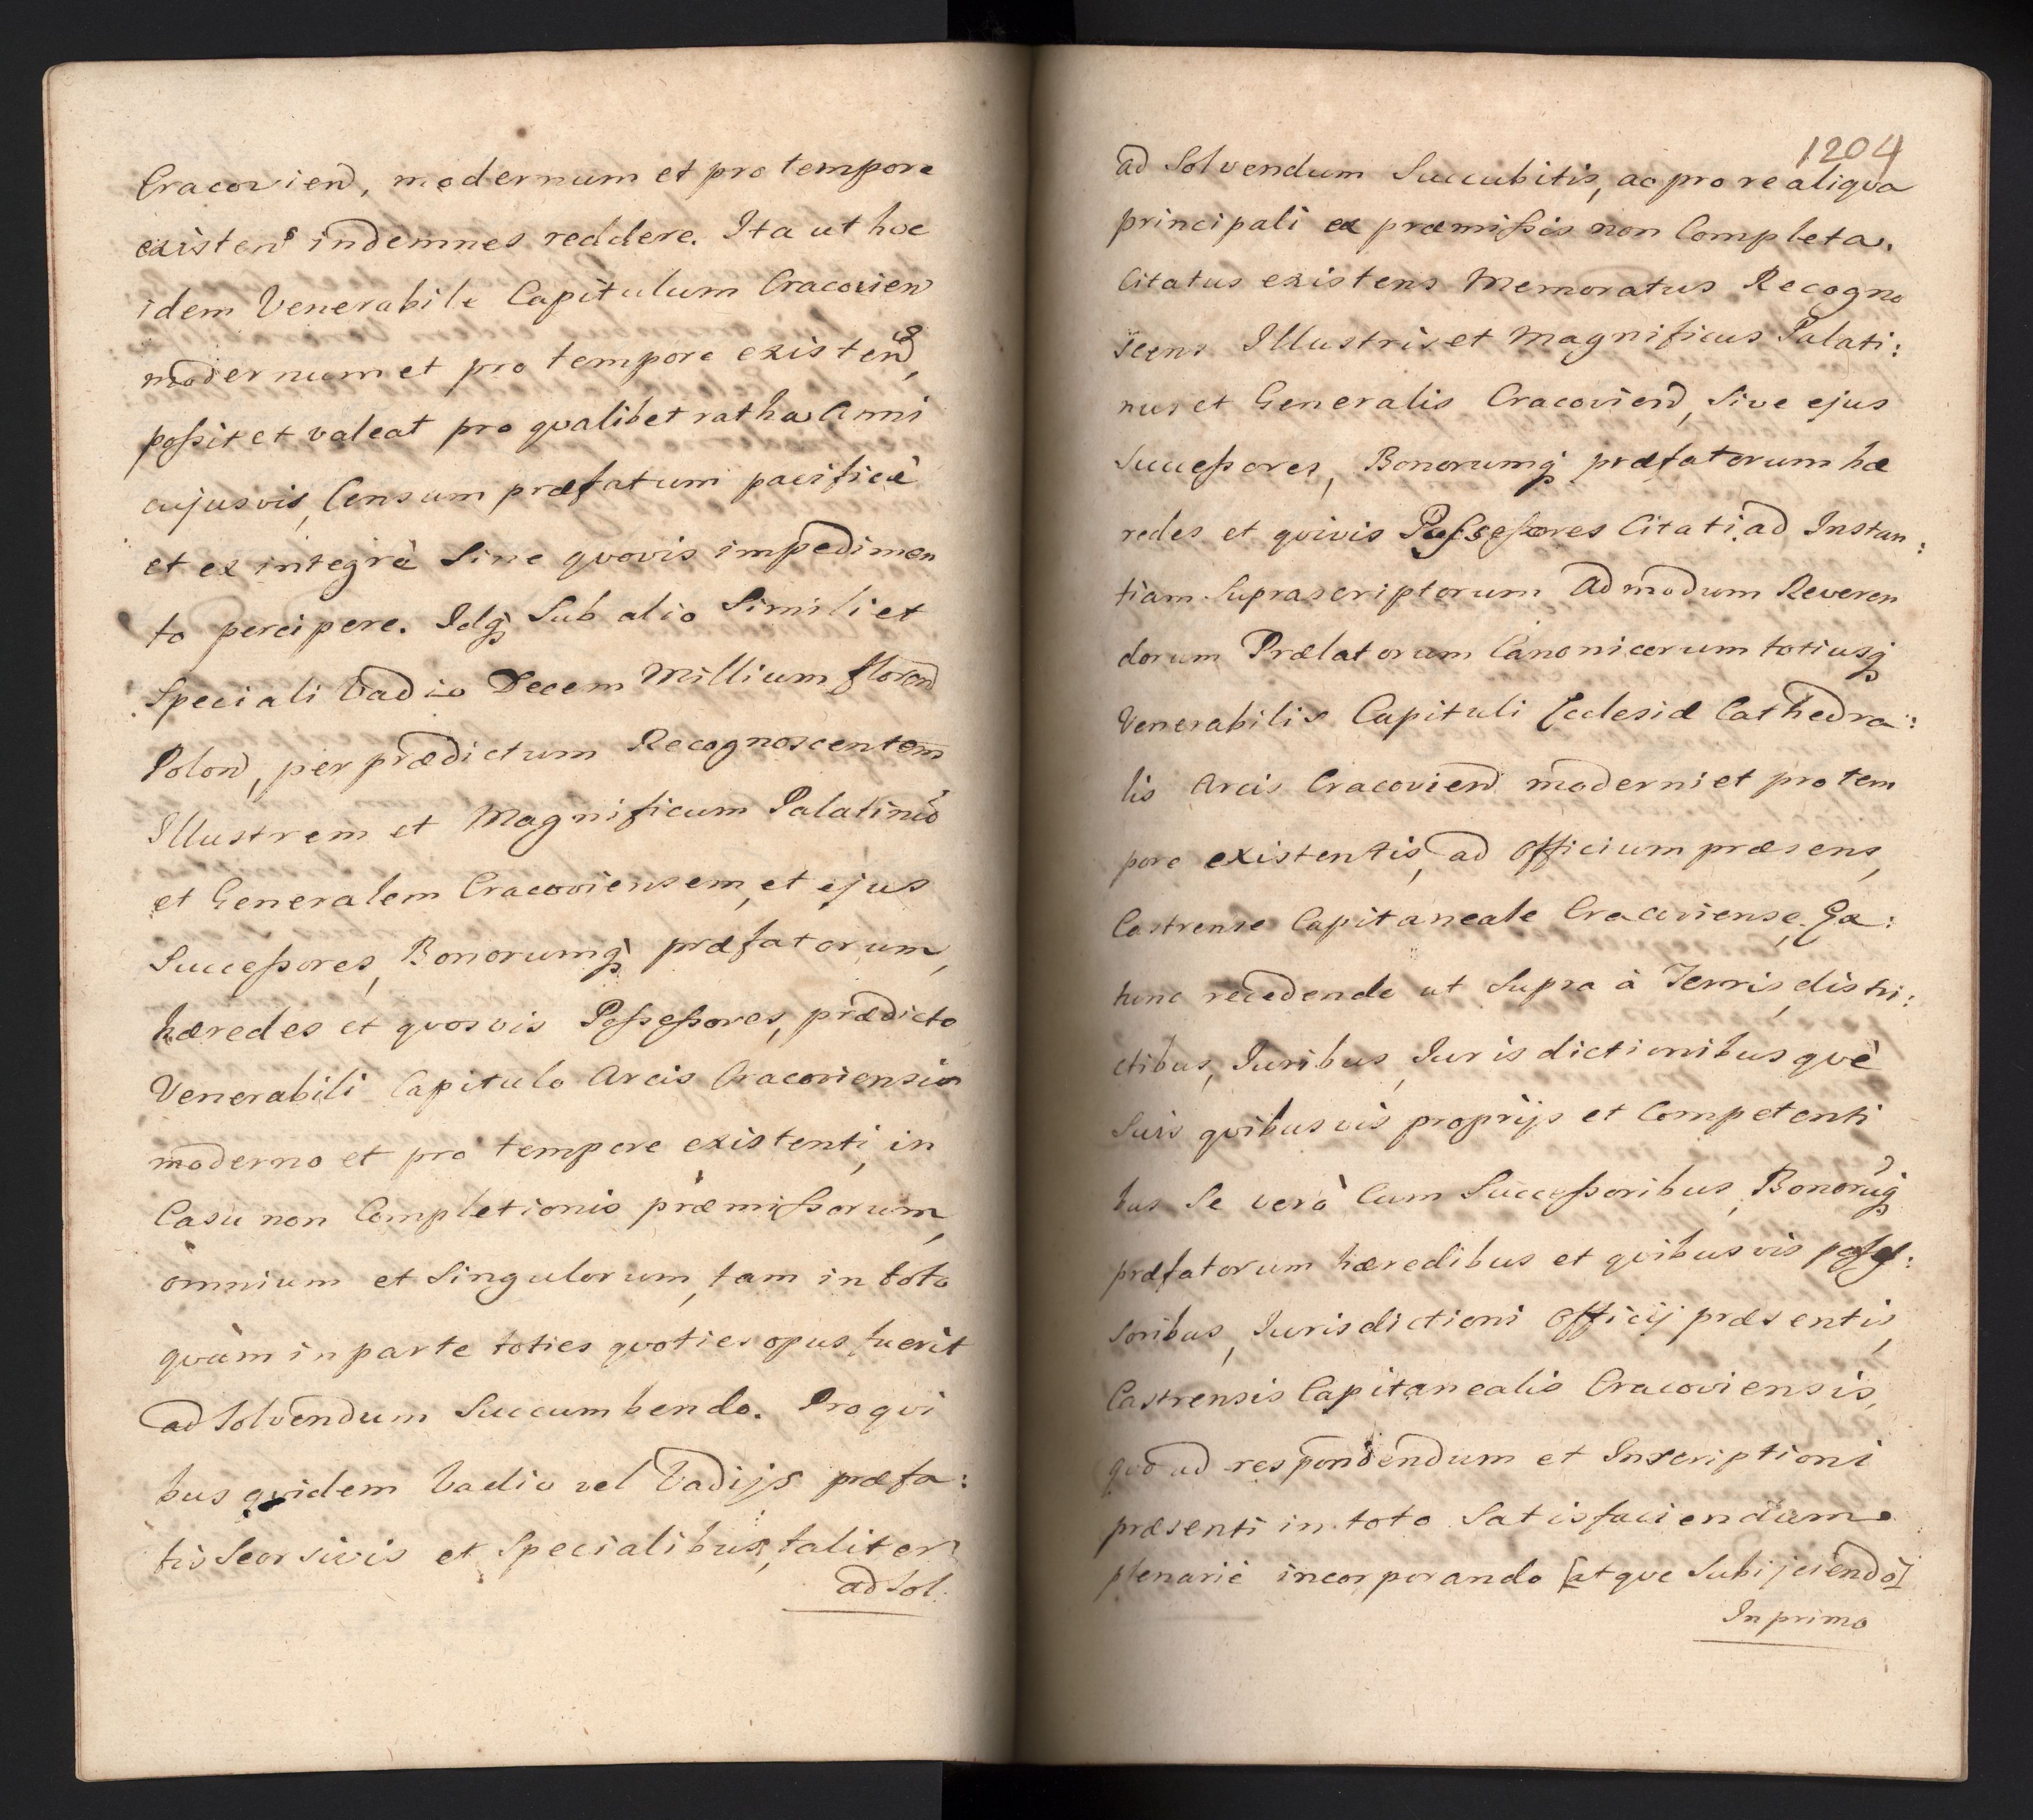 Cracovien, modernum et pro tempore
existens indemnes reddere. Ita ut hoc
idem Venerabile Capitulum Cracovien
modernum et pro tempore existens,
poßit et valeat pro qvalibet ratha Anni
cujusvis, Censum præfatum pacificè
et ex integrè Sine qvovis impedimen
to percipere. Idq; Sub alio Simili et
Speciali Vadio Decem Millium floren
Polon, per prædictum Recognoscentem
Illustrem et Magnificum Palatinũ
et Generalem Cracoviensem, et ejus
Succeßores, Bonorumq; præfatorum,
hæredes et qvosvis Poßeßores, prædicto
Venerabili Capitulo Arcis Cracoviensis
moderno et pro tempore existenti, in
Casu non Completionis præmißorum,
omnium et Singulorum, tam in toto
qvàm in parte toties qvoties opus fuerit
ad Solvendum Succumbendo. Pro qvi
bus qvidem Vadio vel Vadijs præfa:
tis Seorsivis et Specialibus, taliter
ad Sol.
1204
ad Solvendum Succubitis, ac pro re aliqva
principali ex præmißis non Completa.
Citatus existens Memoratus Recogno
scens Illustris et Magnificus Palati:
nus et Generalis Cracovien, Sive ejus
Succeßores, Bonorumq; præfatorum hæ
redes et qvivis Poßeßores Citati ad Instan:
tiam Suprascriptorum Admodum Reveren
dorum Prælatorum Canonicorum totiusq;
Venerabilis Capituli Ecclesiæ Cathedra:
lis Arcis Cracovien moderni et pro tem
pore existentis, ad Officium præsens,
Castrense Capitaneale Cracoviense. Ex:
tunc recedendo ut Supra à Terris, distri:
ctibus, Juribus, Jurisdictionibusqvè
Suis qvibusvis proprijs et Competenti
bus Se verò Cum Succeßoribus, Bonorũq;
præfatorum hæredibus et qvibusvis poßeß:
soribus, Jurisdictioni Officij præsentis,
Castrensis Capitanealis Cracoviensis,
qvo ad respondendum et Inscriptioni
præsenti in toto Satisfaciendum
plenariè incorporando [atqve Subijciendo]
In primo